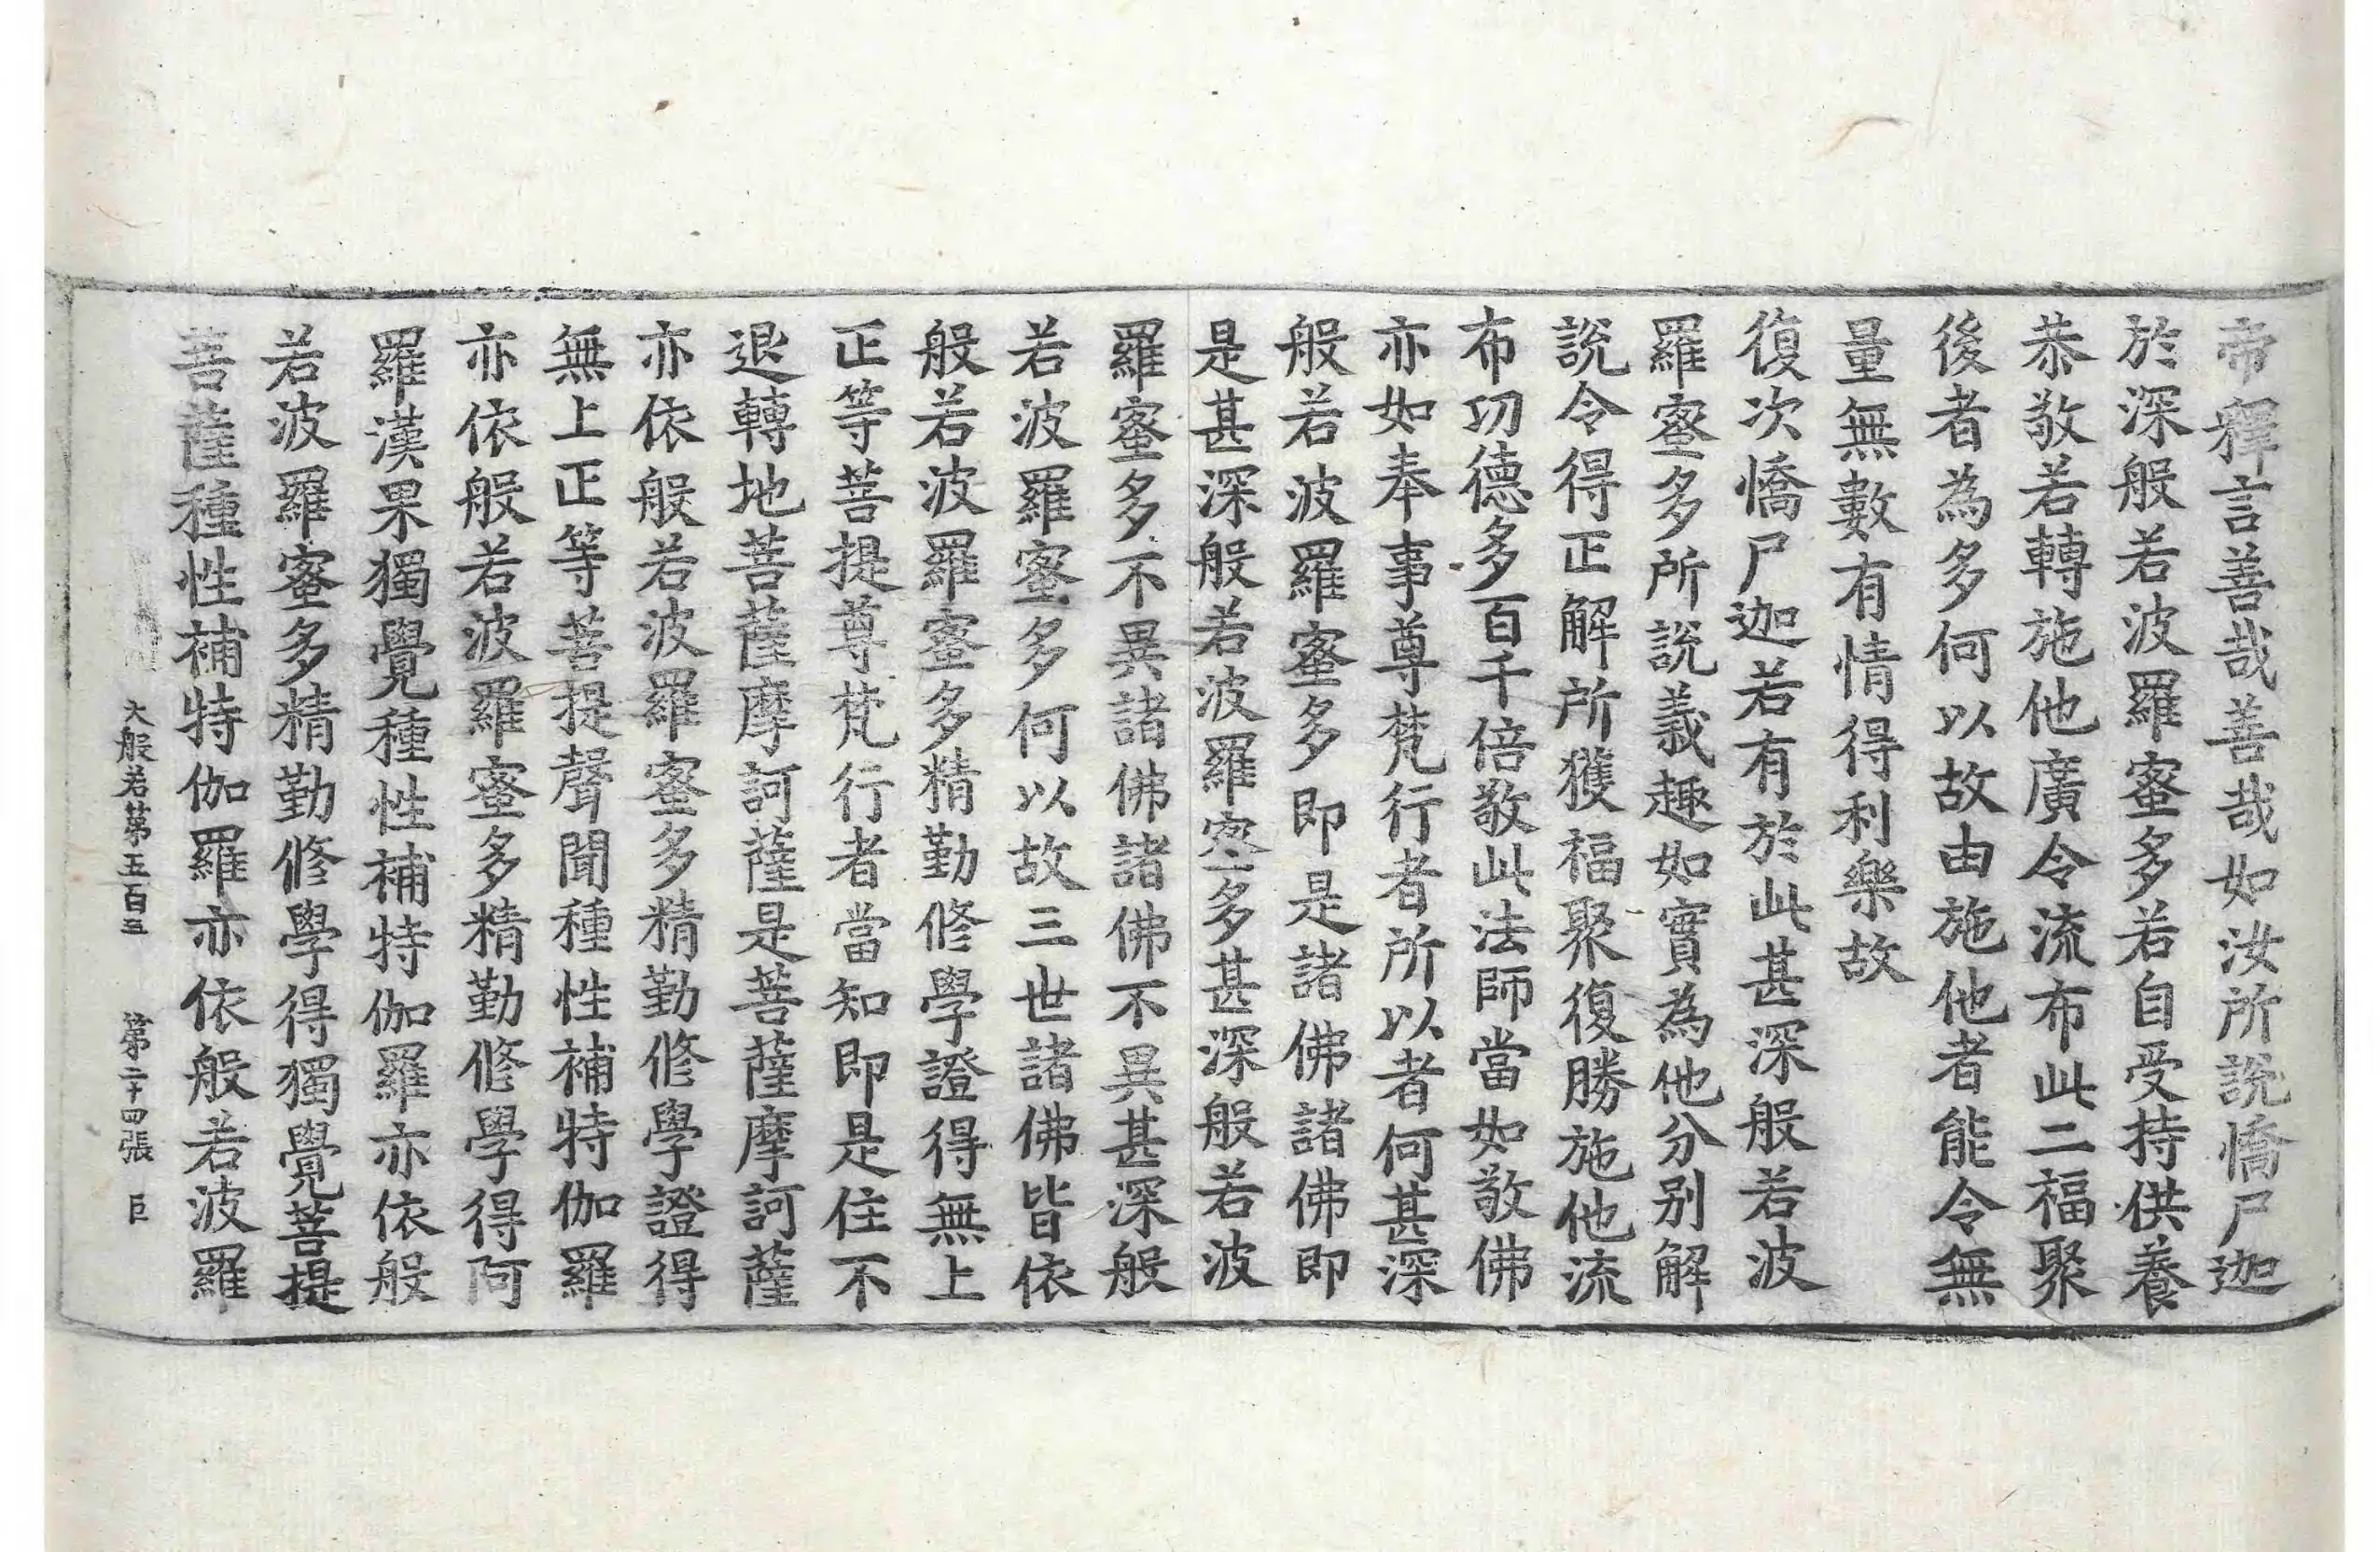 帝釋言善哉善哉如汝所說憍尸迦
於深般若波羅蜜多若自受持供養
恭敬若轉施他廣令流布此二福聚
後者為多何以故由施他者能令無
量無數有情得利樂故
復次憍尸迦若有於此甚深般若波
羅蜜多所說義趣如實為他分別解
說令得正解所獲福聚復勝施他流
布功德多百千倍敬此法師當如敬佛
亦如奉事尊梵行者所以者何甚深
般若波羅蜜多即是諸佛諸佛即
是甚深般若波羅蜜多甚深般若波
羅蜜多不異諸佛諸佛不異甚深般
若波羅蜜多何以故三世諸佛皆依
般若波羅蜜多精勤修學證得無上
正等菩提尊梵行者當知即是住不
退轉地菩薩摩訶薩是菩薩摩訶薩
亦依般若波羅蜜多精勤修學證得
無上正等菩提聲聞種性補特伽羅
亦依般若波羅蜜多精勤修學得阿
羅漢果獨覺種性補特伽羅亦依般
若波羅蜜多精勤修學得獨覺菩提
菩薩種性補特伽羅亦依般若波羅
大般若第五百三 第二十四張 巨